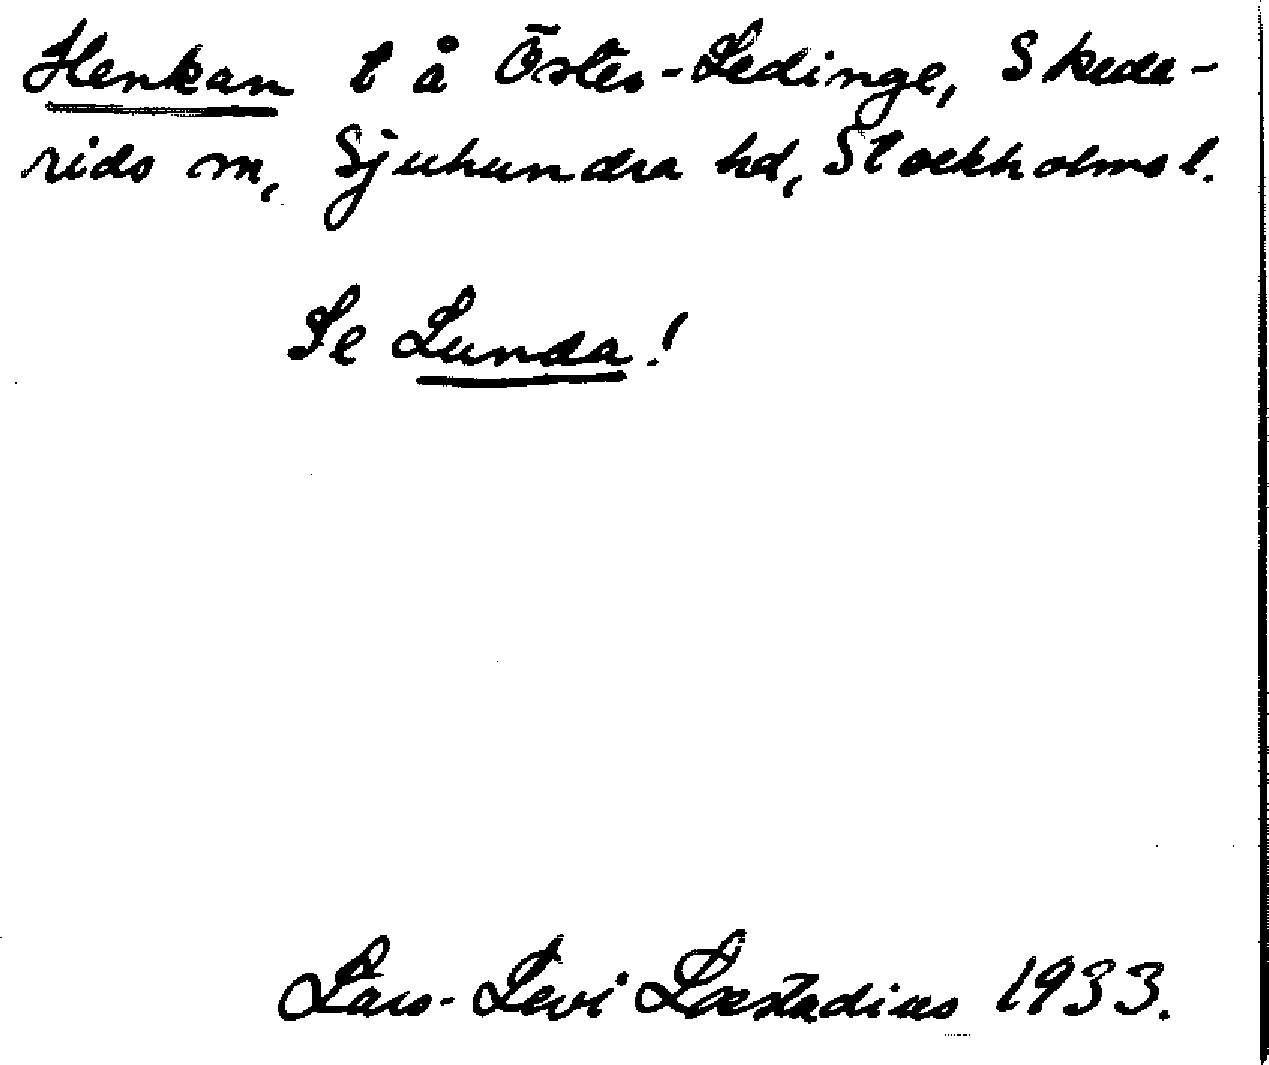 Henkan t å Öster-Ledinge, Skede-
rids sn, Sjuhundra hd, Stockholms l.
Se Lunda!
Lars-Levi Læstadius 1933.